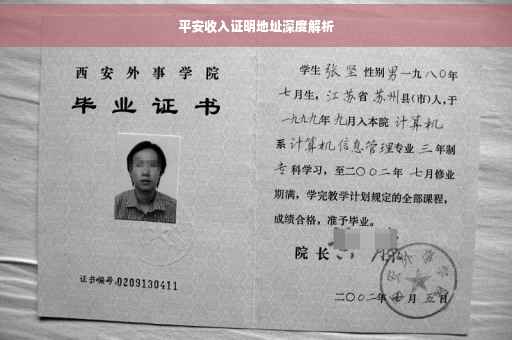 平安收入证明地址深度解析
西安外事学院
毕业证书
证书编号:0209130411
学生 张坚 性别 男 一九八〇年
七月生，江苏省 苏州县(市)人，于
一九九九年 九月入本院 计算机
系 计算机信息管理专业 三 年制
专科学习，至二〇〇二年 七月修业
期满，学完教学计划规定的全部课程，
成绩合格，准予毕业。
院长
二〇〇二年 月 五日